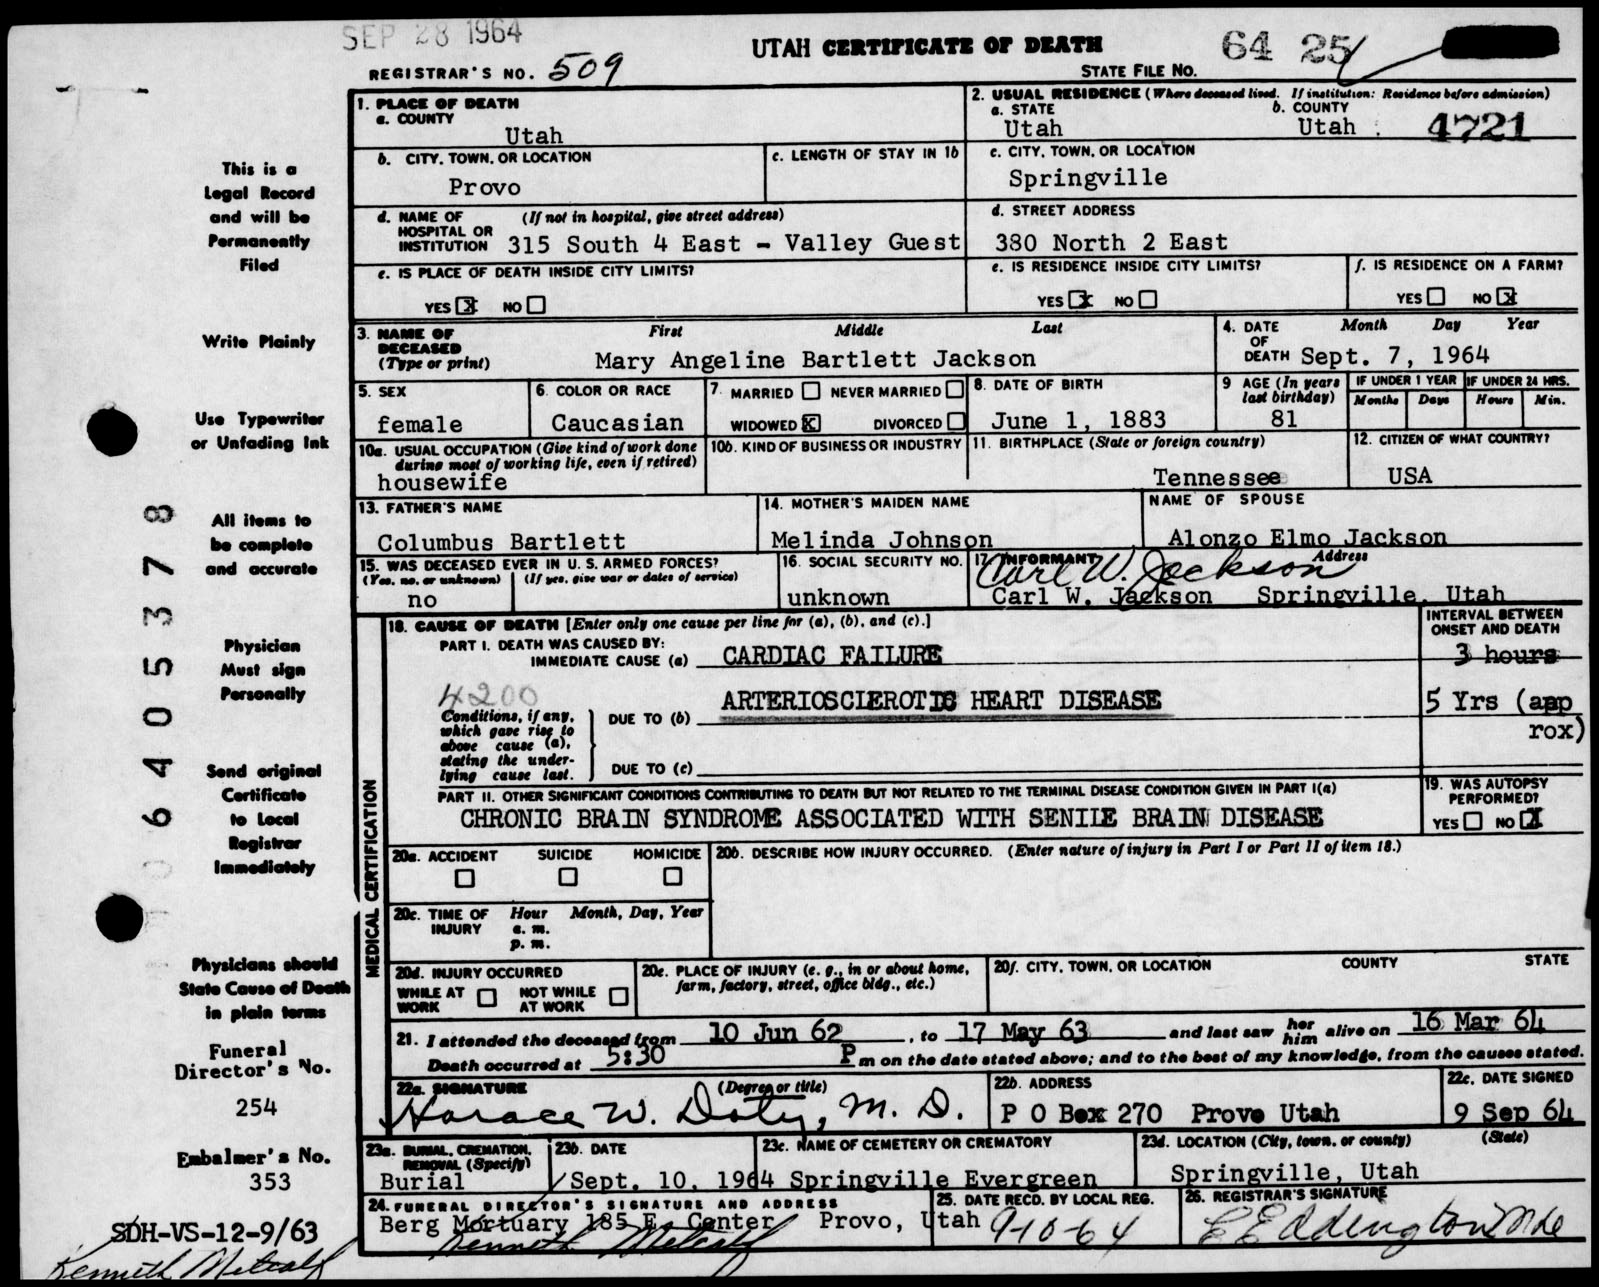 SEP 28 1964
UTAH CERTIFICATE OF DEATH
64 25
REGISTRAR'S NO. 509
STATE FILE NO.
1. PLACE OF DEATH
a. COUNTY
Utah
2. USUAL RESIDENCE (Where deceased lived. If institution: Residence before admission)
a. STATE
Utah
b. COUNTY
Utah
4721
b. CITY, TOWN, OR LOCATION
Provo
c. LENGTH OF STAY IN 1b
c. CITY, TOWN, OR LOCATION
Springville
d. NAME OF HOSPITAL OR INSTITUTION (If not in hospital, give street address)
315 South 4 East - Valley Guest
d. STREET ADDRESS
380 North 2 East
e. IS PLACE OF DEATH INSIDE CITY LIMITS?
YES X NO
e. IS RESIDENCE INSIDE CITY LIMITS?
YES X NO
f. IS RESIDENCE ON A FARM?
YES NO X
3. NAME OF DECEASED (Type or print)
First Middle Last
Mary Angeline Bartlett Jackson
4. DATE OF DEATH
Month Day Year
Sept. 7, 1964
5. SEX
female
6. COLOR OR RACE
Caucasian
7. MARRIED NEVER MARRIED
WIDOWED X DIVORCED
8. DATE OF BIRTH
June 1, 1883
9 AGE (In years last birthday)
81
IF UNDER 1 YEAR
Months Days
IF UNDER 24 HRS.
Hours Min.
10a. USUAL OCCUPATION (Give kind of work done during most of working life, even if retired)
housewife
10b. KIND OF BUSINESS OR INDUSTRY
11. BIRTHPLACE (State or foreign country)
Tennessee
12. CITIZEN OF WHAT COUNTRY?
USA
13. FATHER'S NAME
Columbus Bartlett
14. MOTHER'S MAIDEN NAME
Melinda Johnson
NAME OF SPOUSE
Alonzo Elmo Jackson
15. WAS DECEASED EVER IN U.S. ARMED FORCES?
(Yes, no, or unknown) (If yes, give war or dates of service)
no
16. SOCIAL SECURITY NO.
unknown
17. INFORMANT Address
Carl W. Jackson
Carl W. Jackson Springville, Utah
MEDICAL CERTIFICATION
18. CAUSE OF DEATH [Enter only one cause per line for (a), (b), and (c).]
INTERVAL BETWEEN ONSET AND DEATH
PART I. DEATH WAS CAUSED BY:
IMMEDIATE CAUSE (a) CARDIAC FAILURE
3 hours
4200
Conditions, if any, which gave rise to above cause (a), stating the underlying cause last.
DUE TO (b) ARTERIOSCLEROTIC HEART DISEASE
5 Yrs (app
rox)
DUE TO (c)
PART II. OTHER SIGNIFICANT CONDITIONS CONTRIBUTING TO DEATH BUT NOT RELATED TO THE TERMINAL DISEASE CONDITION GIVEN IN PART I(a)
CHRONIC BRAIN SYNDROME ASSOCIATED WITH SENILE BRAIN DISEASE
19. WAS AUTOPSY PERFORMED?
YES NO X
20a. ACCIDENT SUICIDE HOMICIDE
20b. DESCRIBE HOW INJURY OCCURRED. (Enter nature of injury in Part I or Part II of item 18.)
20c. TIME OF INJURY Hour Month, Day, Year
a. m.
p. m.
20d. INJURY OCCURRED
WHILE AT WORK NOT WHILE AT WORK
20e. PLACE OF INJURY (e. g., in or about home, farm, factory, street, office bldg., etc.)
20f. CITY, TOWN, OR LOCATION COUNTY STATE
21. I attended the deceased from 10 Jun 62, to 17 May 63 and last saw her him alive on 16 Mar 64
Death occurred at 5:30 P m on the date stated above; and to the best of my knowledge, from the causes stated.
22a. SIGNATURE (Degree or title)
Horace W. Doty, M. D.
22b. ADDRESS
P O Box 270 Provo Utah
22c. DATE SIGNED
9 Sep 64
23a. BURIAL, CREMATION, REMOVAL (Specify)
Burial
23b. DATE
Sept. 10, 1964
23c. NAME OF CEMETERY OR CREMATORY
Springville Evergreen
23d. LOCATION (City, town, or county) (State)
Springville, Utah
24. FUNERAL DIRECTOR'S SIGNATURE AND ADDRESS
Berg Mortuary 185 E. Center Provo, Utah
Kenneth Metcalf
25. DATE RECD. BY LOCAL REG.
9-10-64
26. REGISTRAR'S SIGNATURE
This is a
Legal Record
and will be
Permanently
Filed
Write Plainly
Use Typewriter
or Unfading Ink
All items to
be complete
and accurate
Physician
Must sign
Personally
Send original
Certificate
to Local
Registrar
Immediately
Physicians should
State Cause of Death
in plain terms
Funeral
Director's No.
254
Embalmer's No.
353
SDH-VS-12-9/63
Kenneth Metcalf
64053378